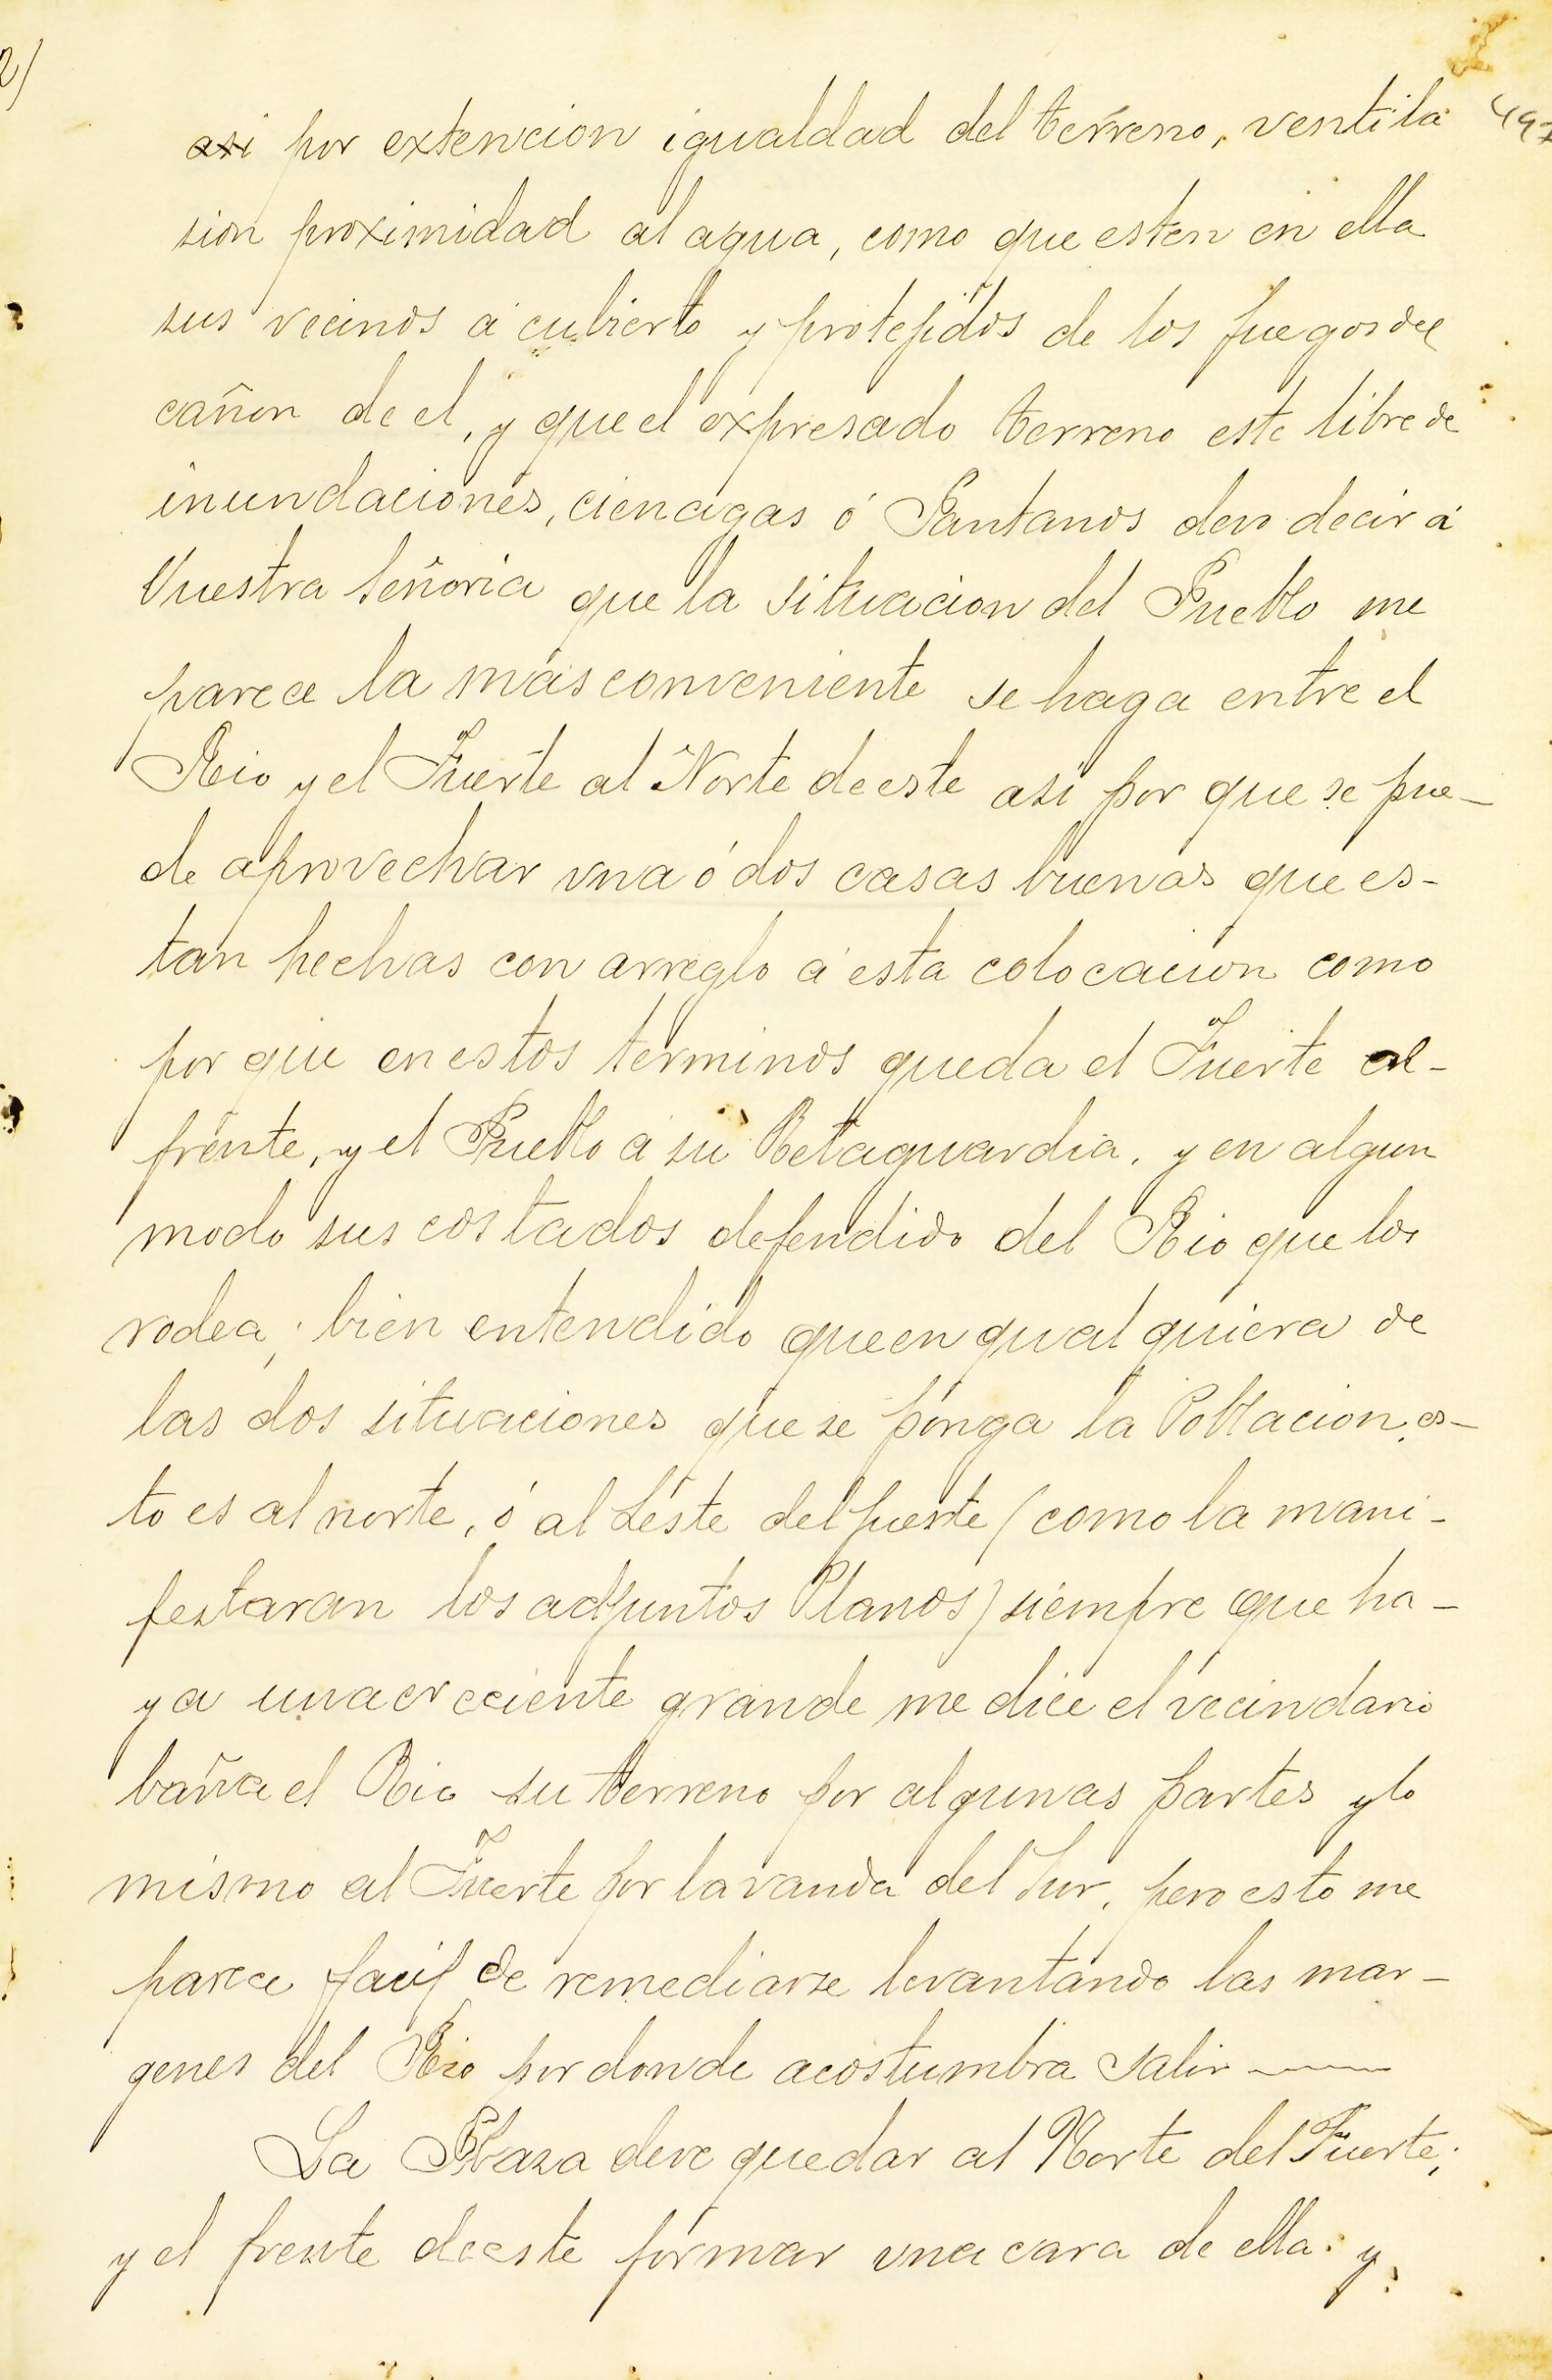 2)
497
asi por extencion igualdad del terreno, ventila
sion proximidad al agua, como que esten en ella
sus vecinos á cubierto y protejidos de los fuegos del
cañon de el, y que el expresado terreno este libre de
inundaciones, cienagas ó Pantanos devo decir á
Vuestra Señoria que la situacion del Pueblo me
parece la mas conveniente se haga entre el
Rio y el Fuerte al Norte de este asi por que se pue-
de aprovechar una ó dos casas buenas que es-
tan hechas con arreglo á esta colocacion como
por que en estos terminos queda el Fuerte al-
frente, y el Pueblo a su Retaguardia, y en algun
modo sus costados defendido del Rio que los
rodea; bien entendido que en qual quiera de
las dos situaciones que se ponga la Poblacion, es-
to es al norte, ó al Léste del fuerte (como la mani-
festaran los adjuntos Planos) siempre que ha-
ya una creciente grande me dice el vecindario
baña el Rio su terreno por algunas partes y lo
mismo al Fuerte por la vanda del Sur, pero esto me
parece facil de remediarse levantando las mar-
genes del Rio por donde acostumbra salir
La Plaza deve quedar al Norte del Fuerte;
y el frente de este formar una cara de ella: y